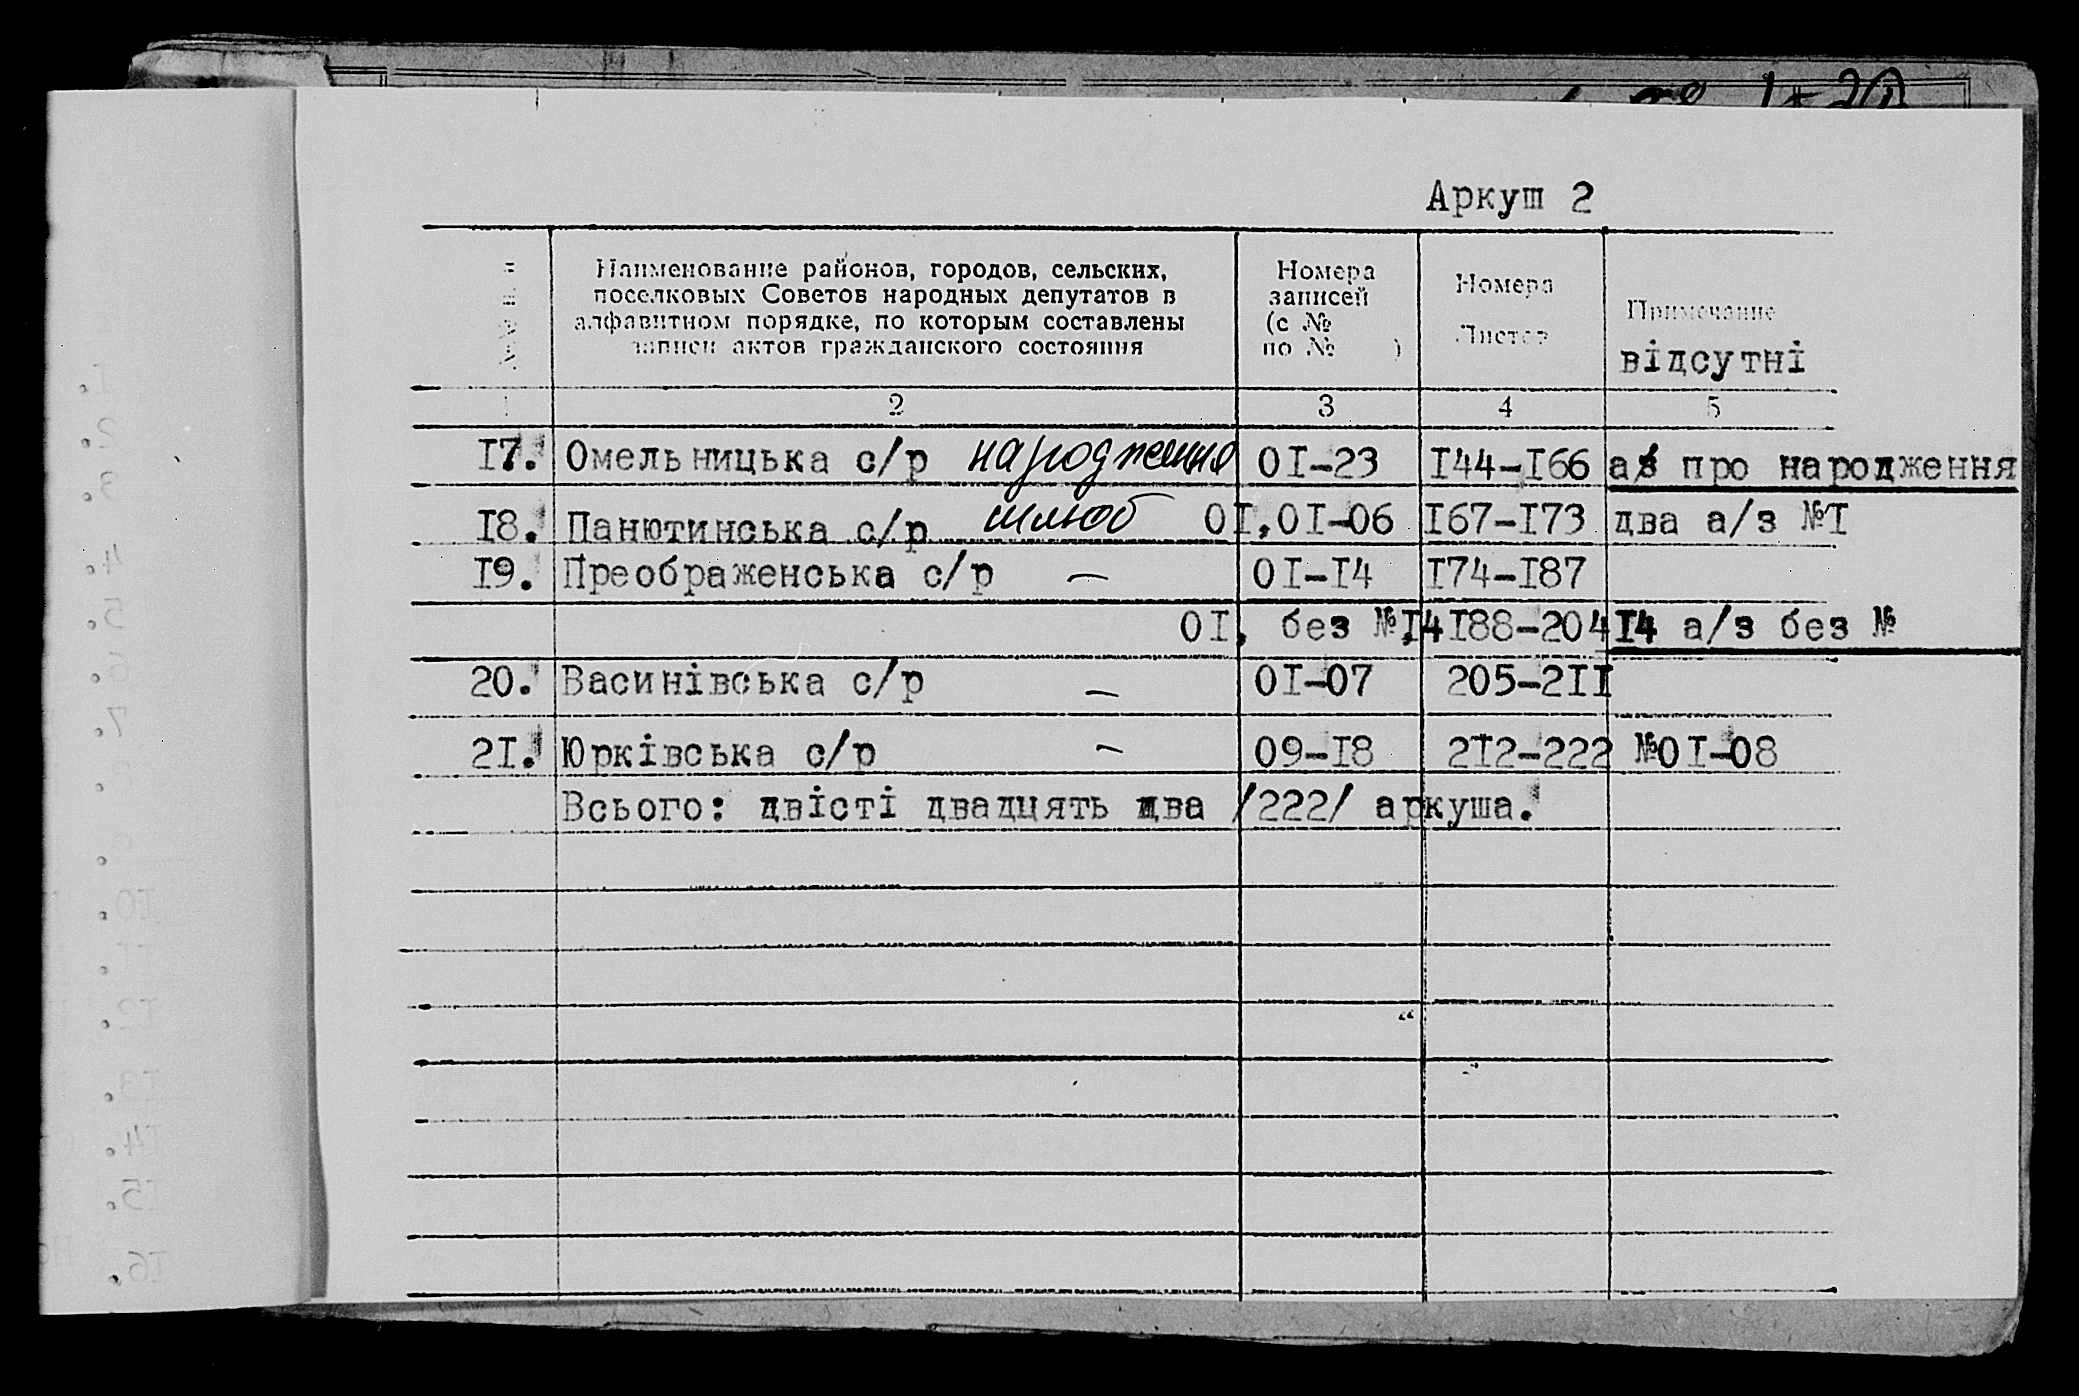 Аркуш 2
Наименование районов, городов, сельских,
поселковых Советов народных депутатов в
алфавитном порядке, по которым составлены
записи актов гражданского состояния
Номера
записей
(с №
по № )
Номера
Листов
Примечание
відсутні
2 3 4 5
17. Омельницька с/р народження 01-23 144-166 а/з про народження
18. Панютинська с/р шлюб 01,01-06 167-173 два а/з №1
19. Преображенська с/р — 01-14 174-187
01, без №14 188-204 14 а/з без №
20. Васинівська с/р — 01-07 205-211
21. Юрківська с/р — 09-18 212-222 №01-08
Всього: двісті двадцять два /222/ аркуша.